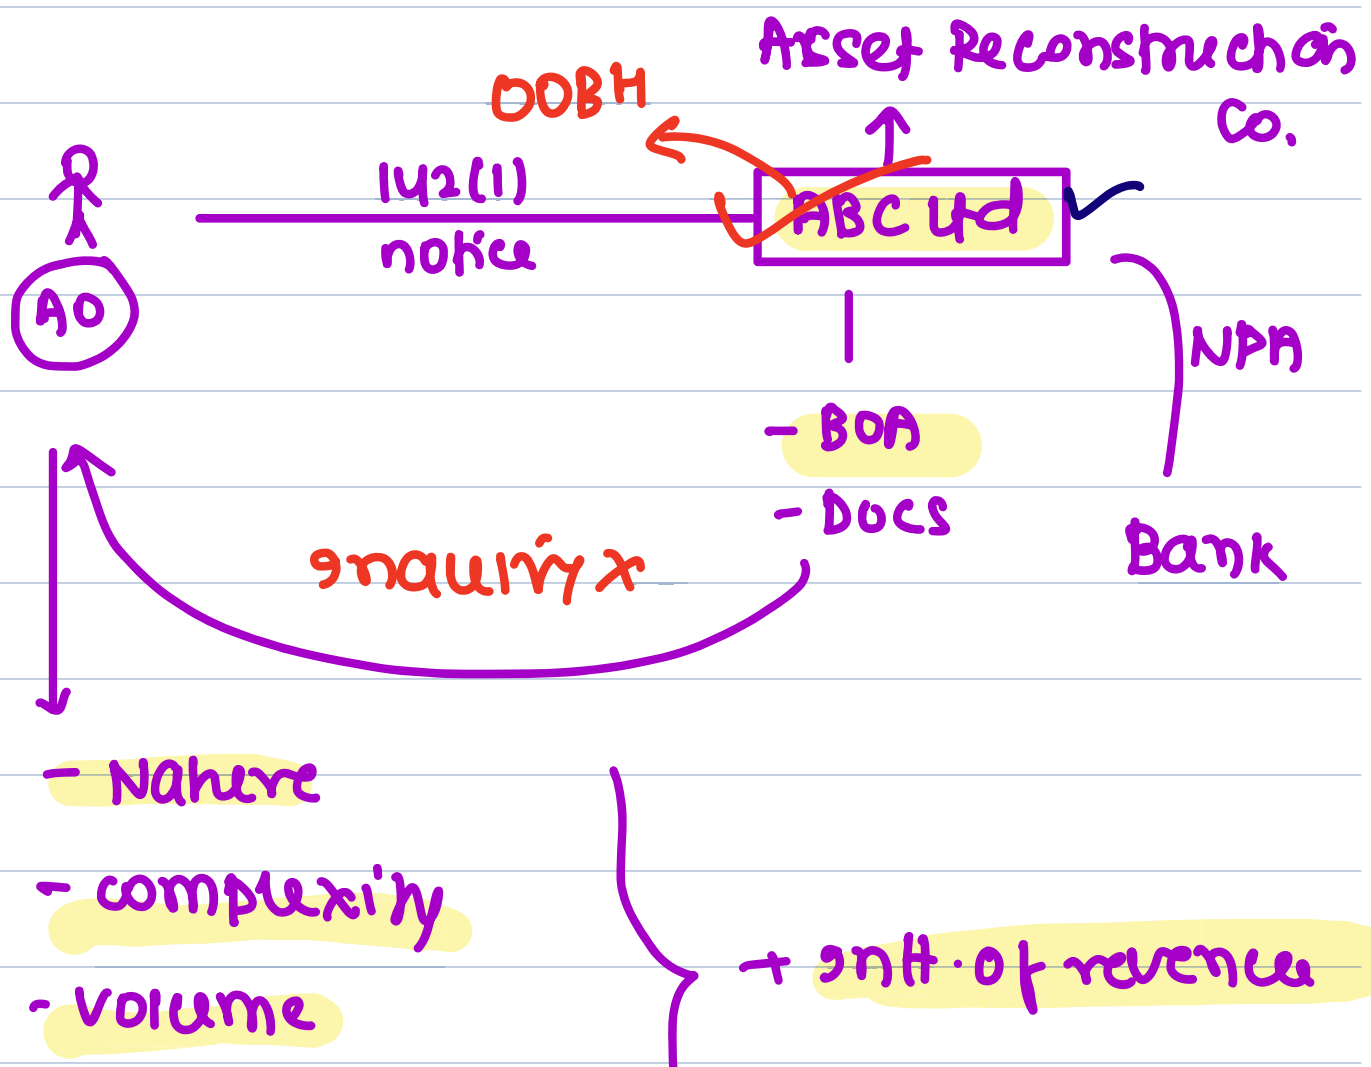 Asset Reconstruction
Co.
OOBH
142(1)
notice
ABC Ltd
AO
NPA
- BOA
- Docs
Bank
Enquiry x
- Nature
- complexity
- volume
+ Intt. of revenue